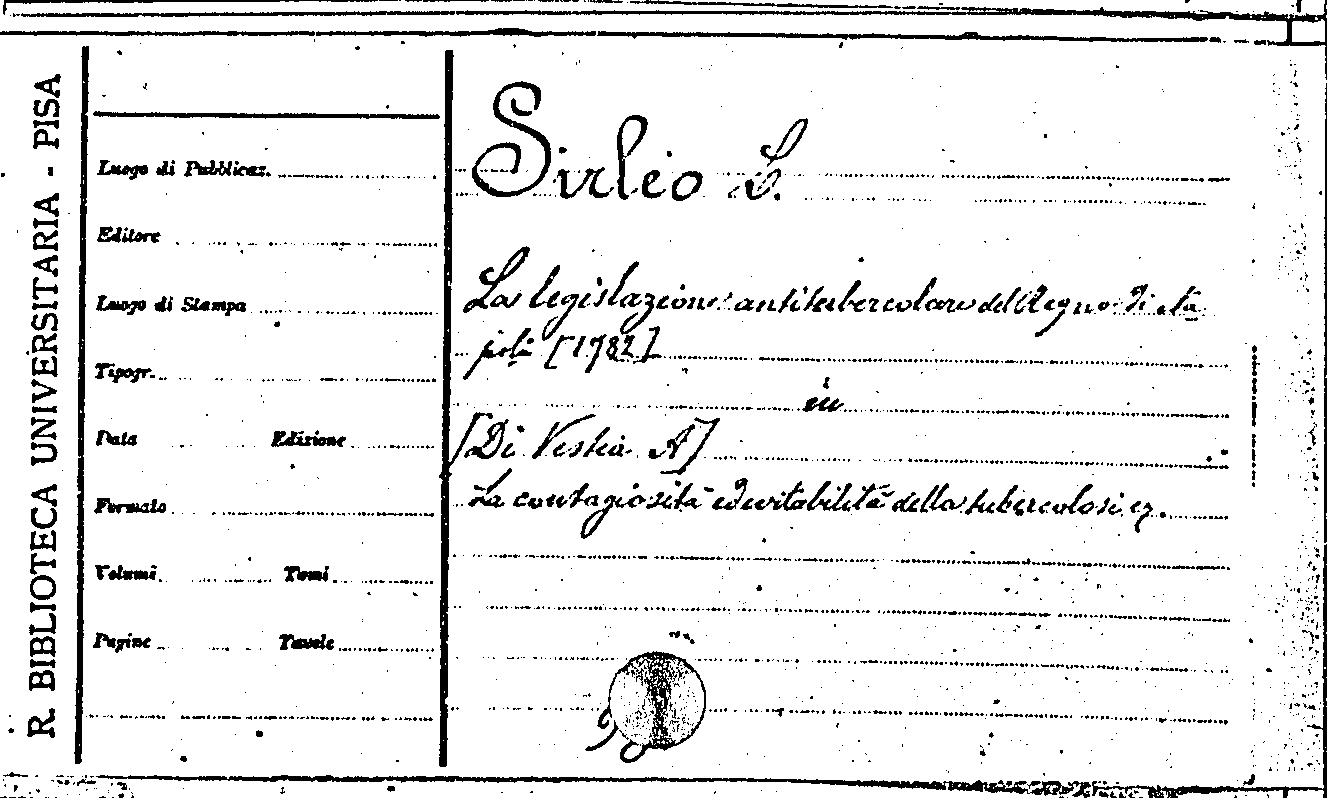 R. BIBLIOTECA UNIVERSITARIA - PISA
Luogo di Pubblicaz.
Editore
Luogo di Stampa
Tipogr.
Data Edizione
Formato
Volumi Tomi
Pagine Tavole
Sirleo L.
La legislazione antitubercolare del Regno di Na
poli [1782]
in
[Di Vestea A]
La contagiosità ed evitabilità della tubercolosi